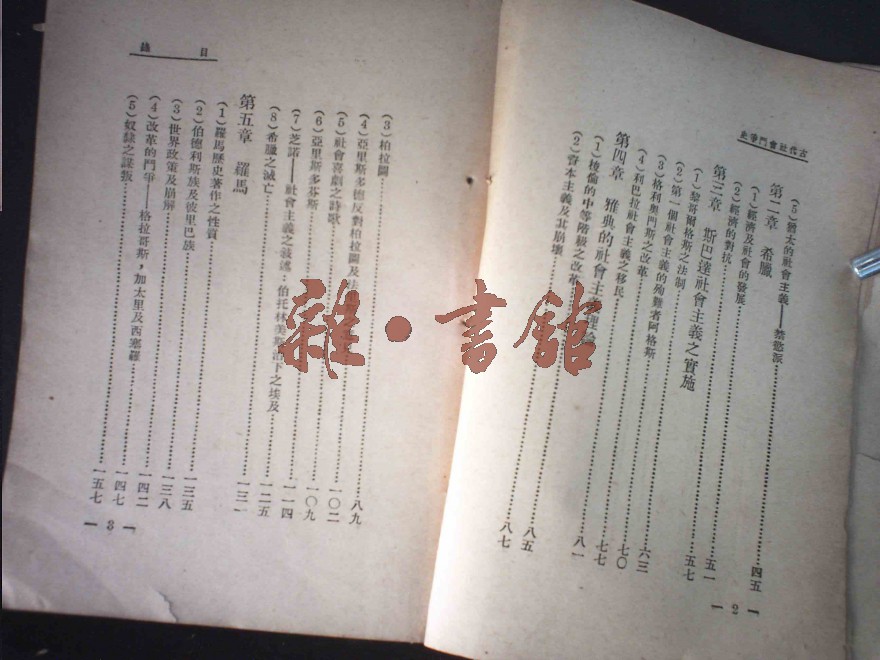 古代社會鬥爭史
(5) 猶太的社會主義——禁慾派……四五
第二章 希臘
(1) 經濟及社會的發展……五一
(2) 經濟的對抗……五七
第三章 斯巴達社會主義之實施
(1) 黎哥爾格斯之法制……六三
(2) 第一個社會主義的殉難者阿格斯……七〇
(3) 格利奧門斯之改革……七七
(4) 利巴拉社會主義之移民……八一
第四章 雅典的社會主 理論
(1) 梭倫的中等階級之改革……八五
(2) 資本主義及其崩壞……八七
— 2 —
目錄
(3) 柏拉圖……八九
(4) 亞里斯多德反對柏拉圖及法……一〇二
(5) 社會喜劇之詩歌……一〇九
(6) 亞里斯多芬斯……一一四
(7) 芝諾——社會主義之 述,伯托林美斯 下之埃及……一二五
(8) 希臘之滅亡……一三一
第五章 羅馬
(1) 羅馬歷史著作之性質……一三五
(2) 伯德利斯族及彼里巴族……一三八
(3) 世界政策及崩解……一四二
(4) 改革的鬥爭——格拉哥斯,加太里及西塞羅……一四七
(5) 奴隸之謀叛……一五七
— 3 —
雜·書館